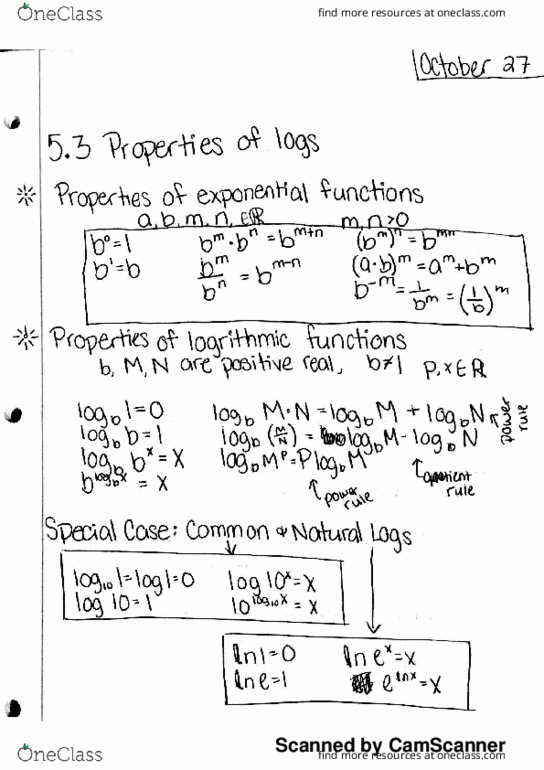 OneClass find more resources at oneclass.com
October 27
5.3 Properties of logs
Properties of exponential functions
a, b, m, n, ∈ℝ m, n >0
b⁰=1 bᵐ·bⁿ = bᵐ⁺ⁿ (bᵐ)ⁿ = bᵐⁿ
b¹=b bᵐ/bⁿ = bᵐ⁻ⁿ (a·b)ᵐ=aᵐ+bᵐ
b⁻ᵐ = 1/bᵐ = (1/b)ᵐ
Properties of logrithmic functions
b, M, N are positive real, b≠1 P, x ∈ ℝ
log_b 1=0 log_b M·N = log_b M + log_b N power rule
log_b b=1 log_b (M/N) = log_b M - log_b N
log_b bˣ = x log_b Mᴾ = P log_b M
b^(log_b x) = x quotient rule
power rule
Special Case: Common & Natural Logs
log₁₀1=log1=0 log 10ˣ=x
log 10=1 10^(log₁₀x) = x
ln1=0 ln eˣ=x
ln e=1 e^(lnx)=x
Scanned by CamScanner
OneClass find more resources at oneclass.com